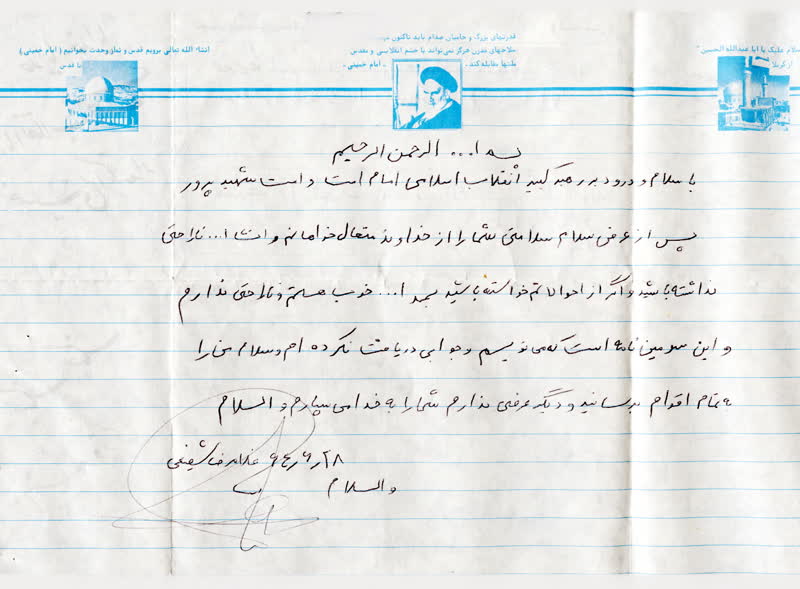 قدرتهای بزرگ و حامیان صدام باید تاکنون
سلاحهای مدرن هرگز نمی‌تواند با خشم انقلابی و مقدس
ملتها مقابله کند. - امام خمینی -
انشاء الله تعالی برویم قدس و نماز وحدت بخوانیم ( امام خمینی )
تا قدس
سلام علیک یا ابا عبدالله الحسین
از کربلا
بسم ا... الرحمن الرحیم
با سلام و درود بر رهبر کبیر انقلاب اسلامی امام امت و امت شهید پرور
پس از عرض سلام سلامتی شما را از خداوند متعال خواهانم و انشا ا... ناراحتی
نداشته باشید و اگر از احوالاتم خواسته باشید بحمد ا... خوب هستم و ناراحتی ندارم
و این سومین نامه است که می نویسم و جوابی دریافت نکرده ام و سلام مرا
به تمام اقوام برسانید و دیگر عرضی ندارم شما را به خدا می سپارم و السلام
۶۴٫۶٫۲۸ غلامرضا شفیعی
والسلام